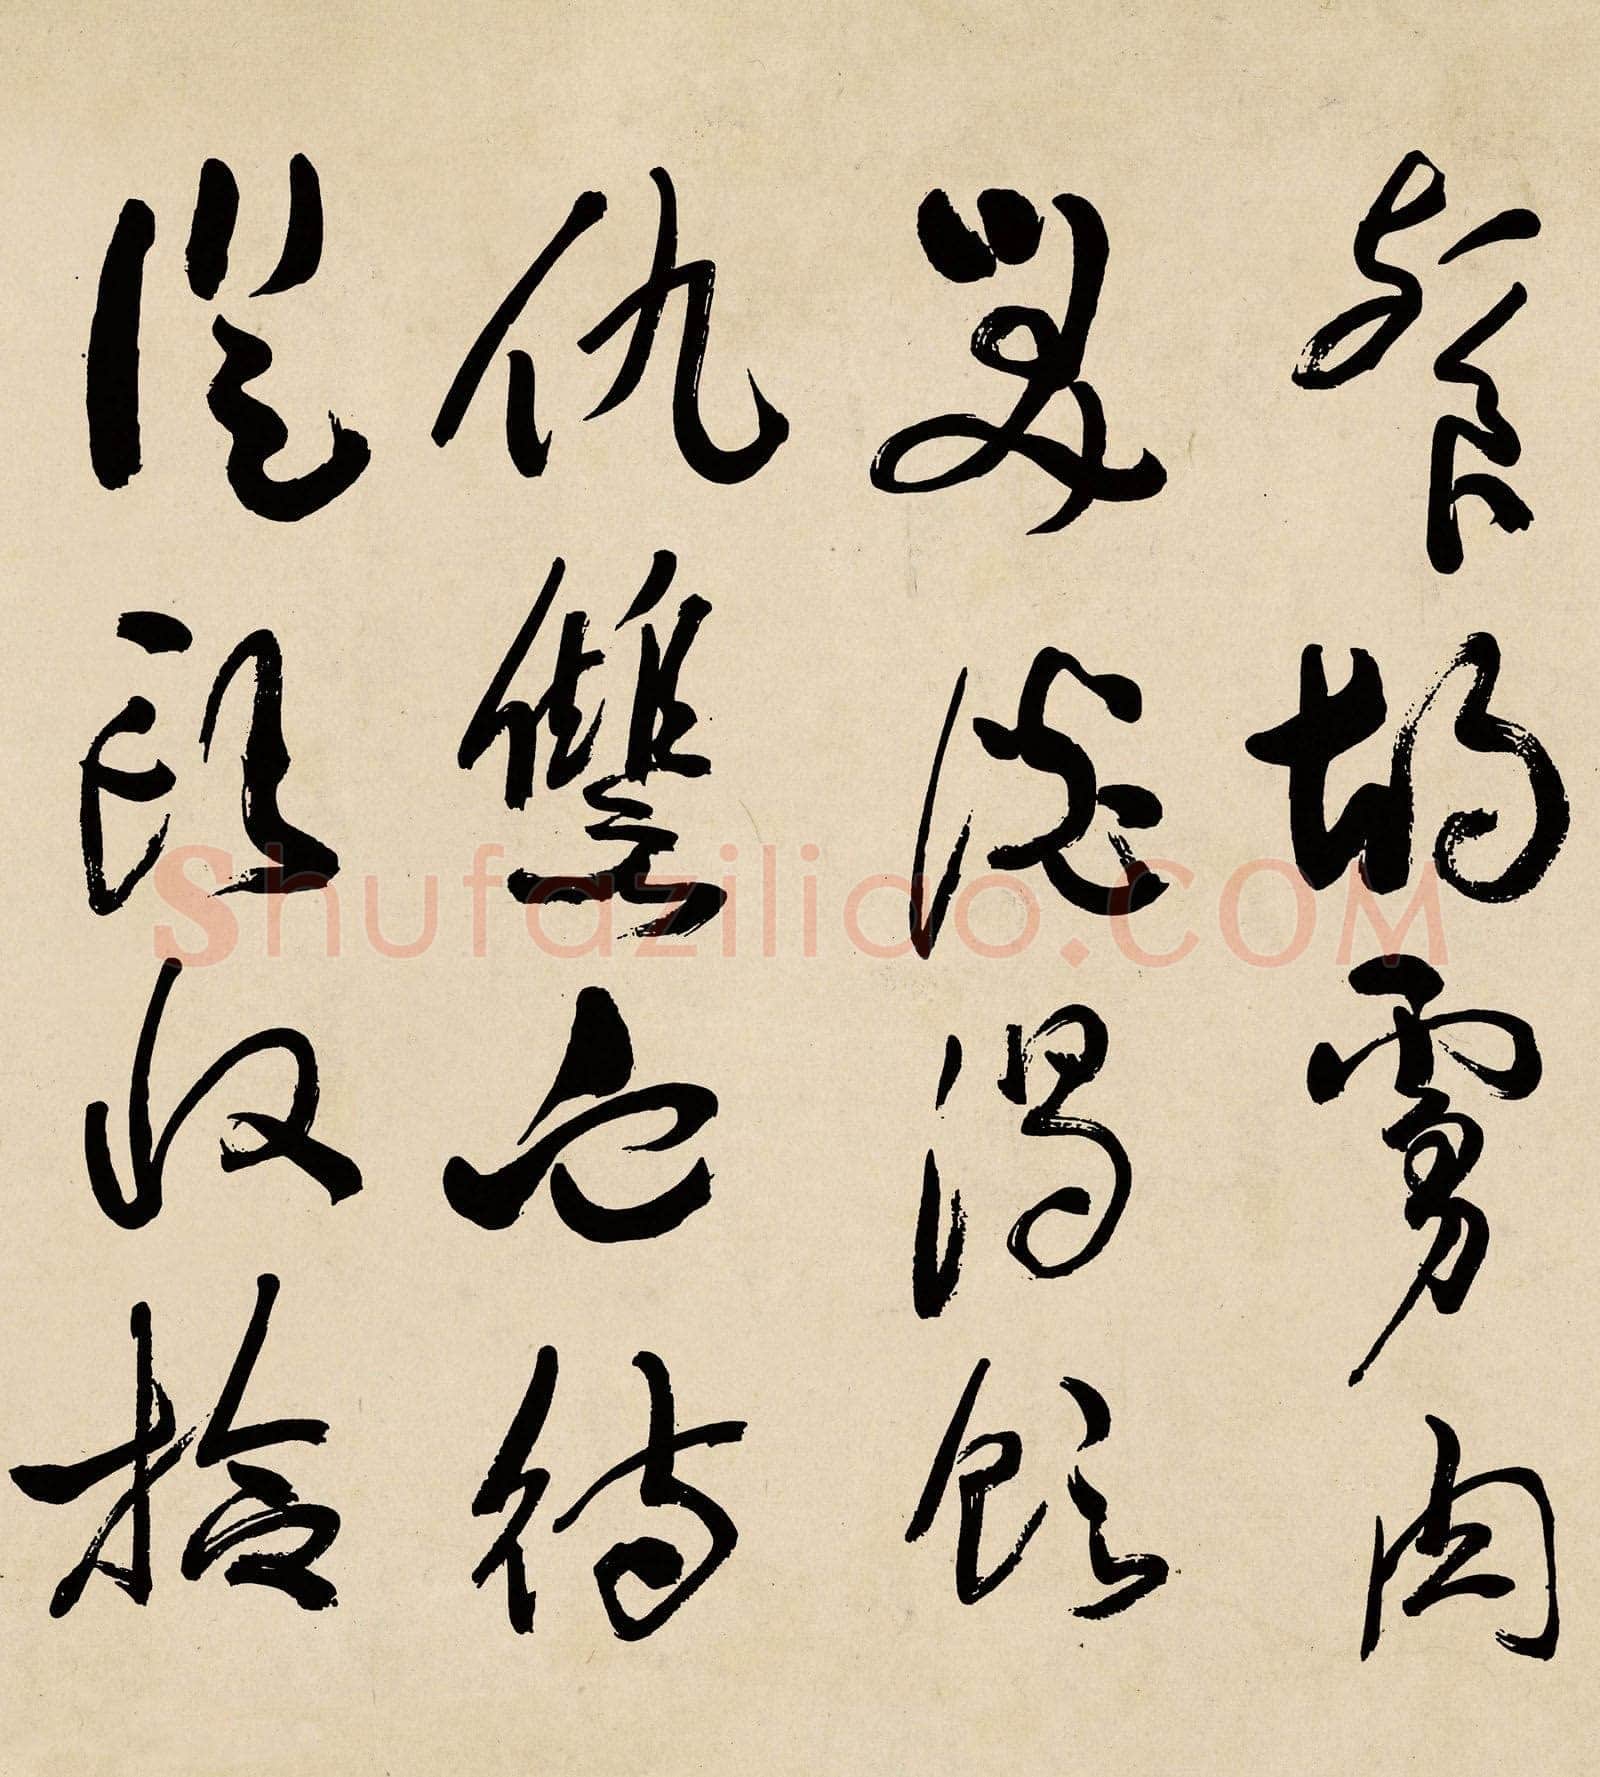 餐胡虜肉
笑談渴飲
仇讐血待
從頭收拾
Shufaziliao.COM